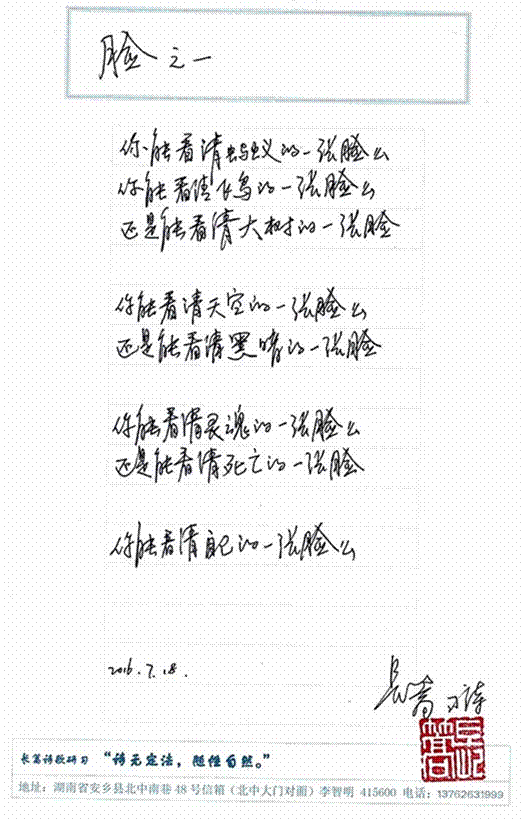 脸之一
你能看清蚂蚁的一张脸么
你能看清飞鸟的一张脸么
还是能看清大树的一张脸
你能看清天空的一张脸么
还是能看清黑暗的一张脸
你能看清灵魂的一张脸么
还是能看清死亡的一张脸
你能看清自己的一张脸么
2016.7.18.
长篙 诗
长篙诗歌研习 “诗无定法，随性自然。”
地址：湖南省安乡县北中南巷48号信箱（北中大门对面）李智明 415600 电话：13762631999